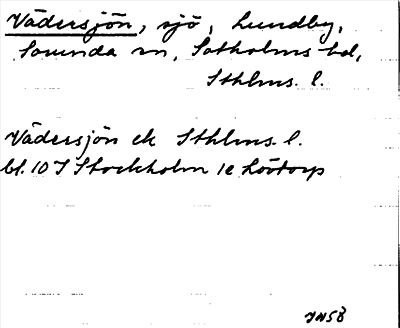 Vädersjön, sjö, Lundby,
Sorunda sn, Sotholms hd,
Sthlms. l.
Vädersjön ek Sthlms. l.
bl. 10 I Stockholm 1e Lövtorp
JN58